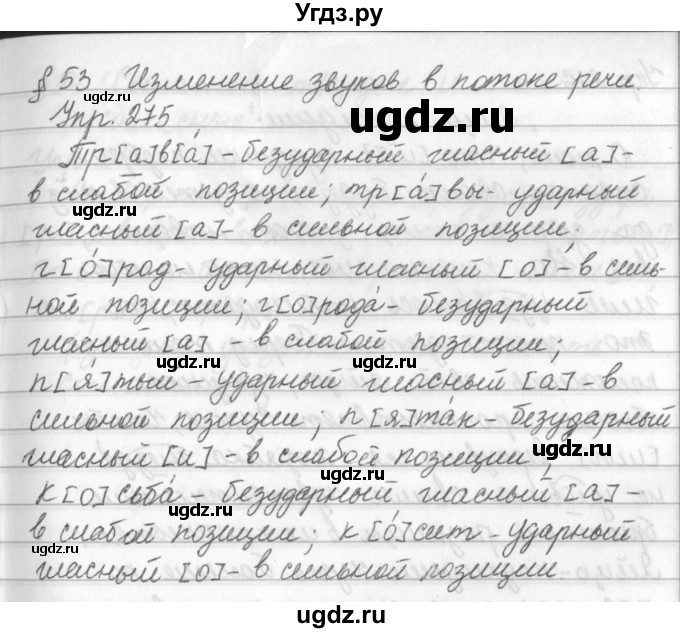 Угдз.ру
§ 53 Изменение звуков в потоке речи.
ugdz.ru
Упр. 275
Тр[а]в[а́] - безударный гласный [а] -
в слабой позиции; тр[а́]вы - ударный
ugdz.ru
гласный [а] - в сильной позиции.
г[о́]род - ударный гласный [о] - в силь-
ной позиции; г[о]рода́ - безударный
гласный [а] - в слабой позиции;
ugdz.ru
ugdz.ru
п[я́]тый - ударный гласный [а] - в
сильной позиции, п[я]та́к - безударный
гласный [и] - в слабой позиции;
ugdz.ru
к[о]сьба́ - безударный гласный [а] -
ugdz.ru
в слабой позиции; к[о́]сит - ударный
ugdz.ru
гласный [о] - в сильной позиции.
ugdz.ru
ugdz.ru